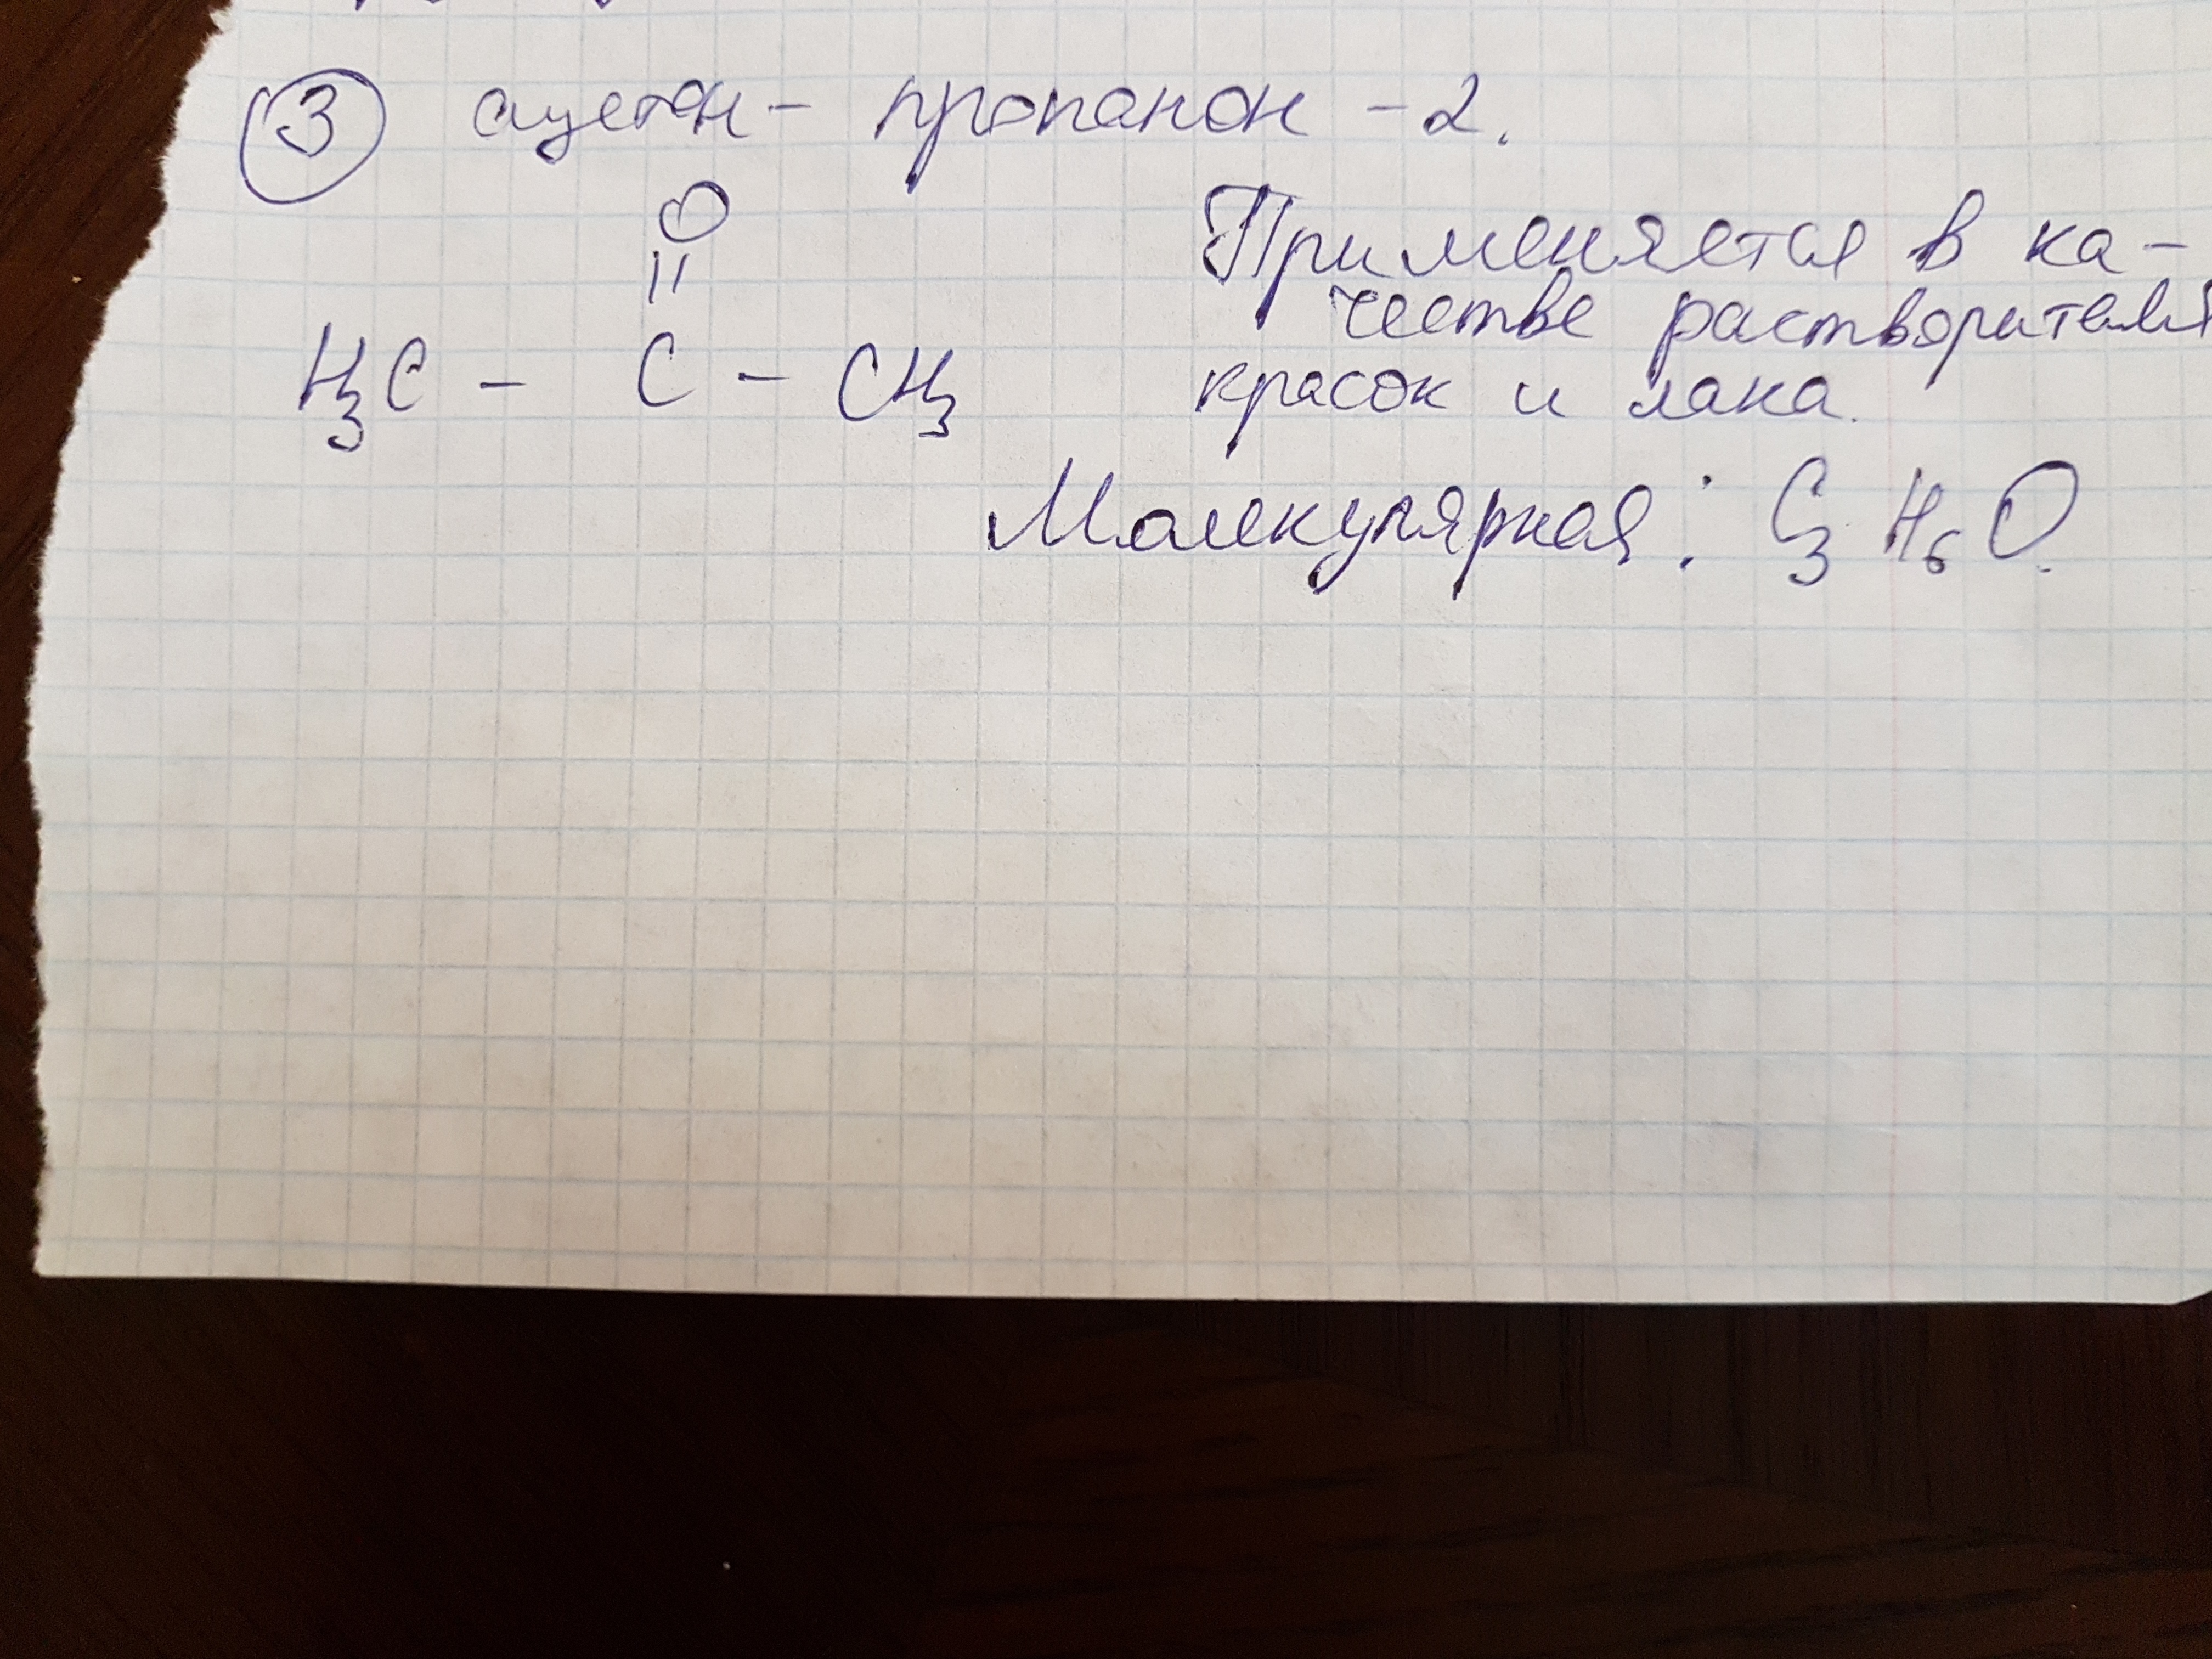 ③ ацетон - пропанон - 2.
O
||
H₃C - C - CH₃
Применяется в ка-
честве растворителя
красок и лака.
Молекулярная: C₃H₆O.